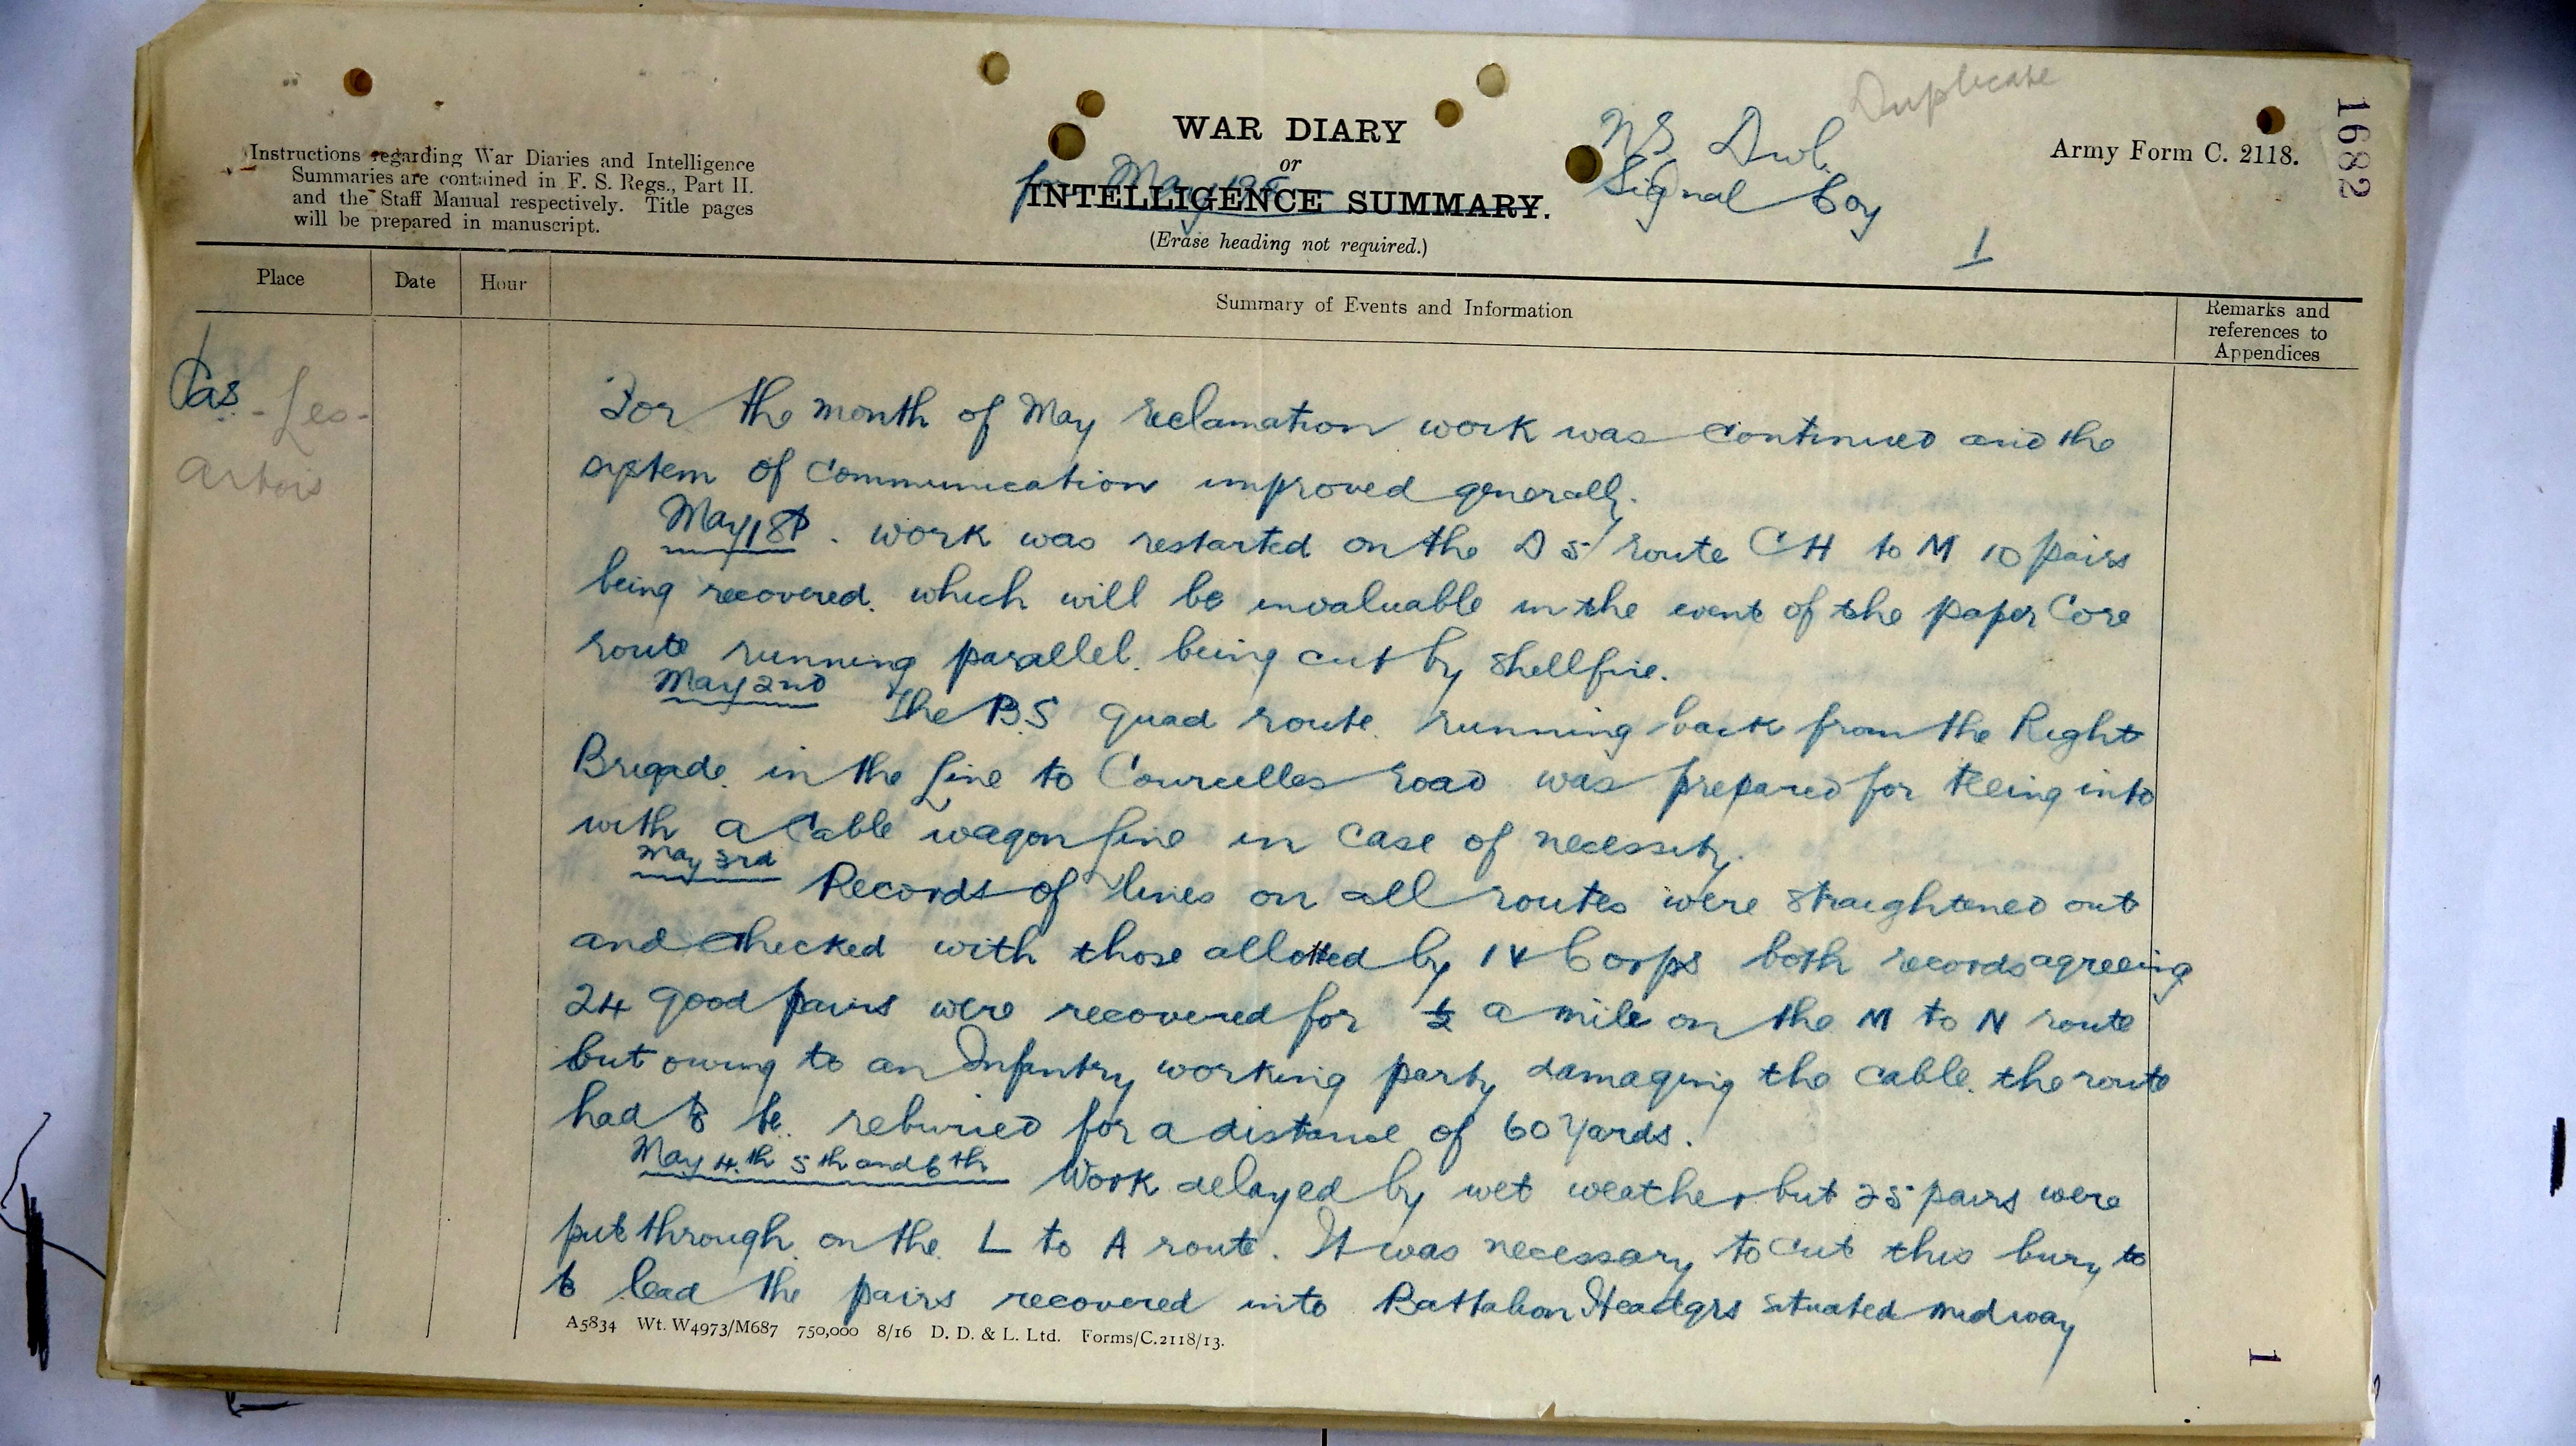 Duplicate
1682
Instructions regarding War Diaries and Intelligence
Summaries are contained in F. S. Regs., Part II.
and the Staff Manual respectively. Title pages
will be prepared in manuscript.
WAR DIARY
or
INTELLIGENCE SUMMARY.
for May
(Erase heading not required.)
NZ Divl.
Signal Coy
1
Army Form C. 2118.
Place
Date
Hour
Summary of Events and Information
Remarks and
references to
Appendices
Pas-Les-
Artois
For the month of May reclamation work was continued and the
system of communication improved generally.
May 1st. work was restarted on the D5 route CH to M 10 pairs
being recovered. which will be invaluable in the event of the paper Core
route running parallel. being cut by shellfire.
May 2nd The B.S quad route. running back from the Right
Brigade. in the line to Courcelles road was prepared for teeing into
with a Cable wagon line in case of necessity.
May 3rd Records of lines on all routes were straightened out
and checked with those allotted by IV Corps both records agreeing
24 good pairs were recovered for ½ a mile on the M to N route
but owing to an Infantry working party damaging the cable. the route
had to be. reburied for a distance of 60 yards.
May 4.th 5th and 6th Work delayed by wet weather but 25 pairs were
put through. on the. L to A route. It was necessary to cut this bury to
to lead the pairs recovered into Battalion Headqrs situated midway
A5834 Wt. W4973/M687 750,000 8/16 D. D. & L. Ltd. Forms/C.2118/13.
1